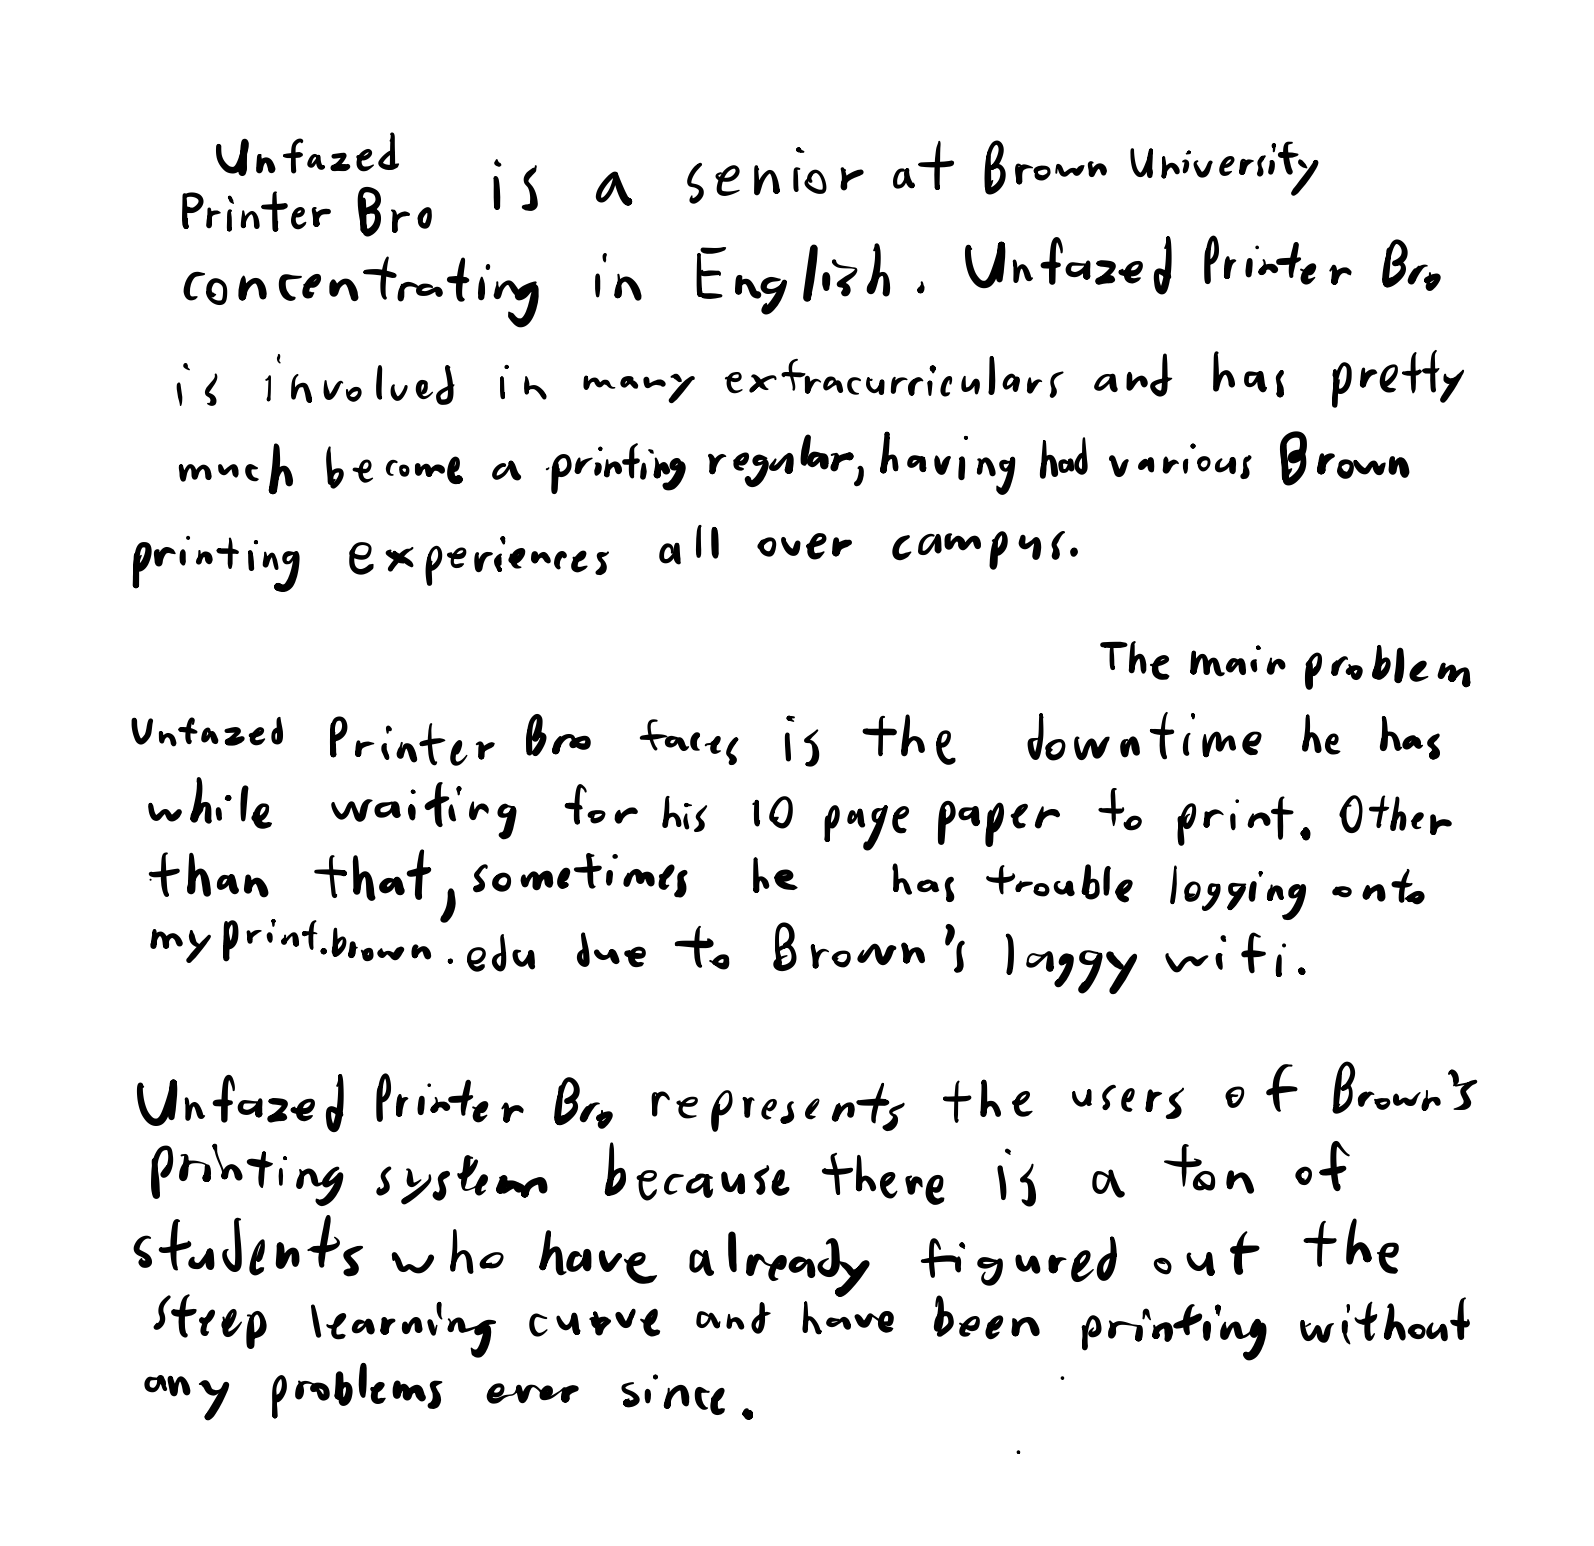 Unfazed
Printer Bro is a senior at Brown University
concentrating in English. Unfazed Printer Bro
is involved in many extracurriculars and has pretty
much become a printing regular, having had various Brown
printing experiences all over campus.
The main problem
Unfazed Printer Bro faces is the downtime he has
while waiting for his 10 page paper to print. Other
than that, sometimes he has trouble logging onto
myprint.brown.edu due to Brown's laggy wifi.
Unfazed Printer Bro represents the users of Brown's
printing system because there is a ton of
students who have already figured out the
steep learning curve and have been printing without
any problems ever since.